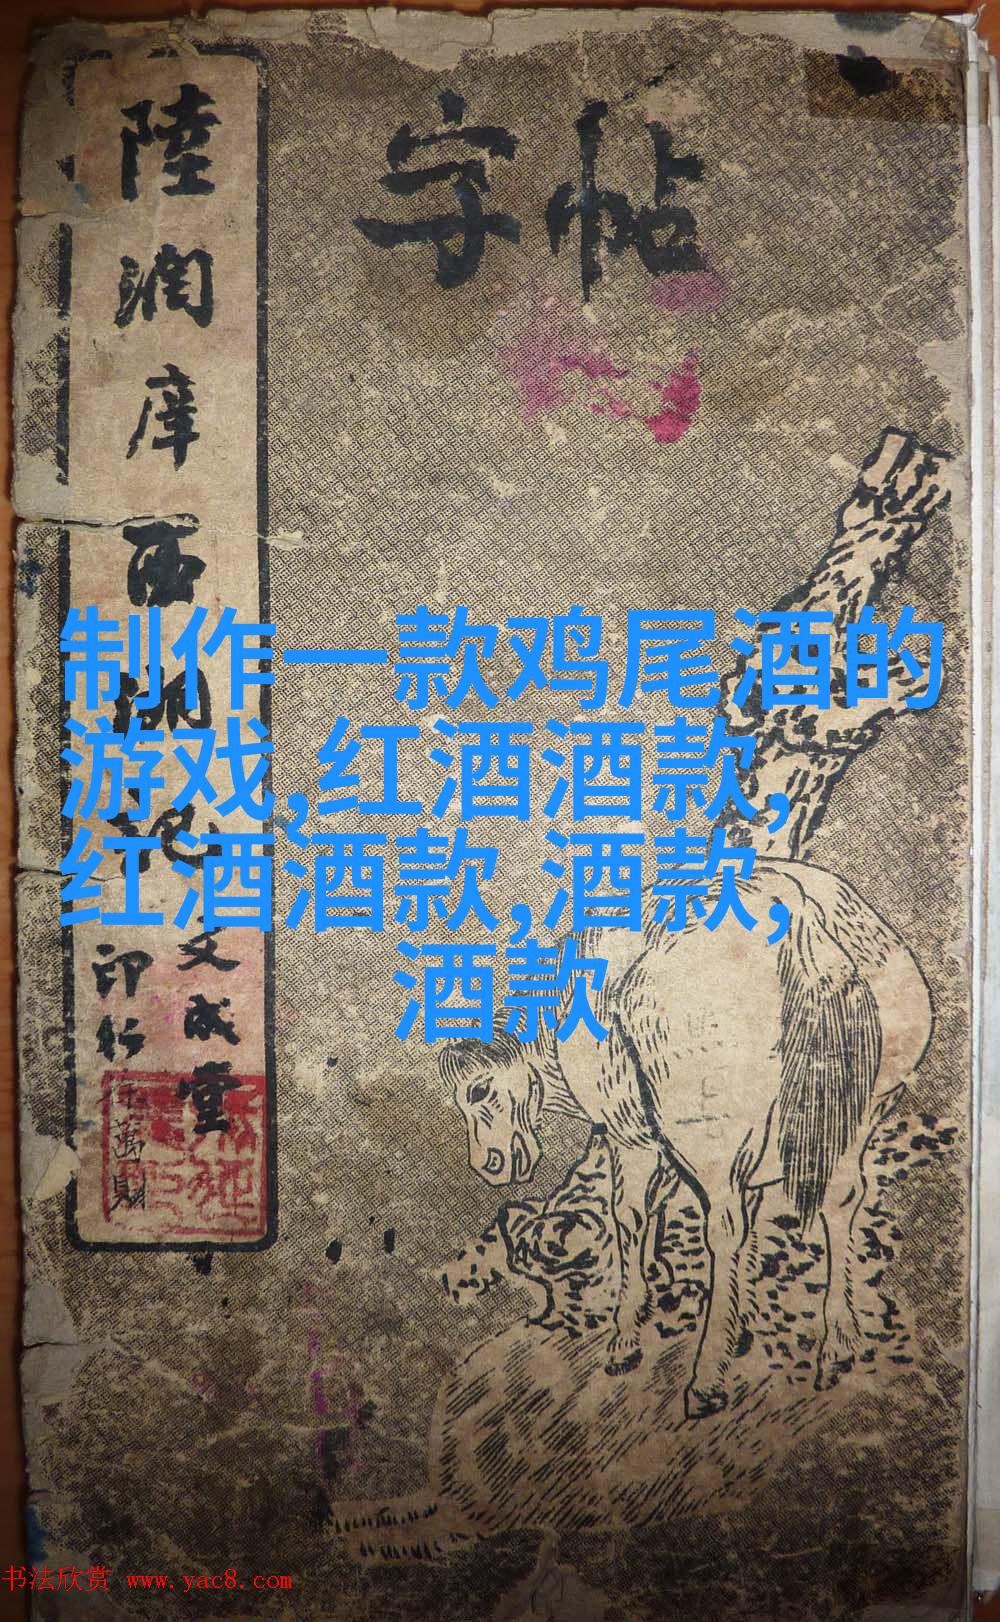 字帖
陸潤庠西湖記
文成堂
印行
徐萬財
制作一款鸡尾酒的
游戏,红酒酒款,
红酒酒款,酒款,
酒款
书法欣赏 www.yac8.com